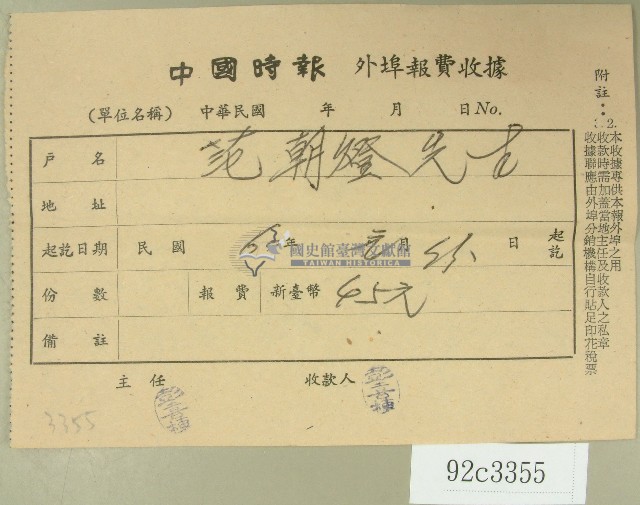 中國時報 外埠報費收據
(單位名稱) 中華民國 年 月 日No.
戶名 范朝燈先生
地址
起訖日期 民國 年 月份 日 起訖
份數 報費 新臺幣 45元
備註
主任 收款人
附註：
1.
2.
本收據專供本報外埠之用
收款時需加蓋當地主任及收款人之私章
收據聯應由外埠分銷機構自行貼足印花稅票
國史館臺灣文獻館
TAIWAN HISTORICA
3355
92c3355